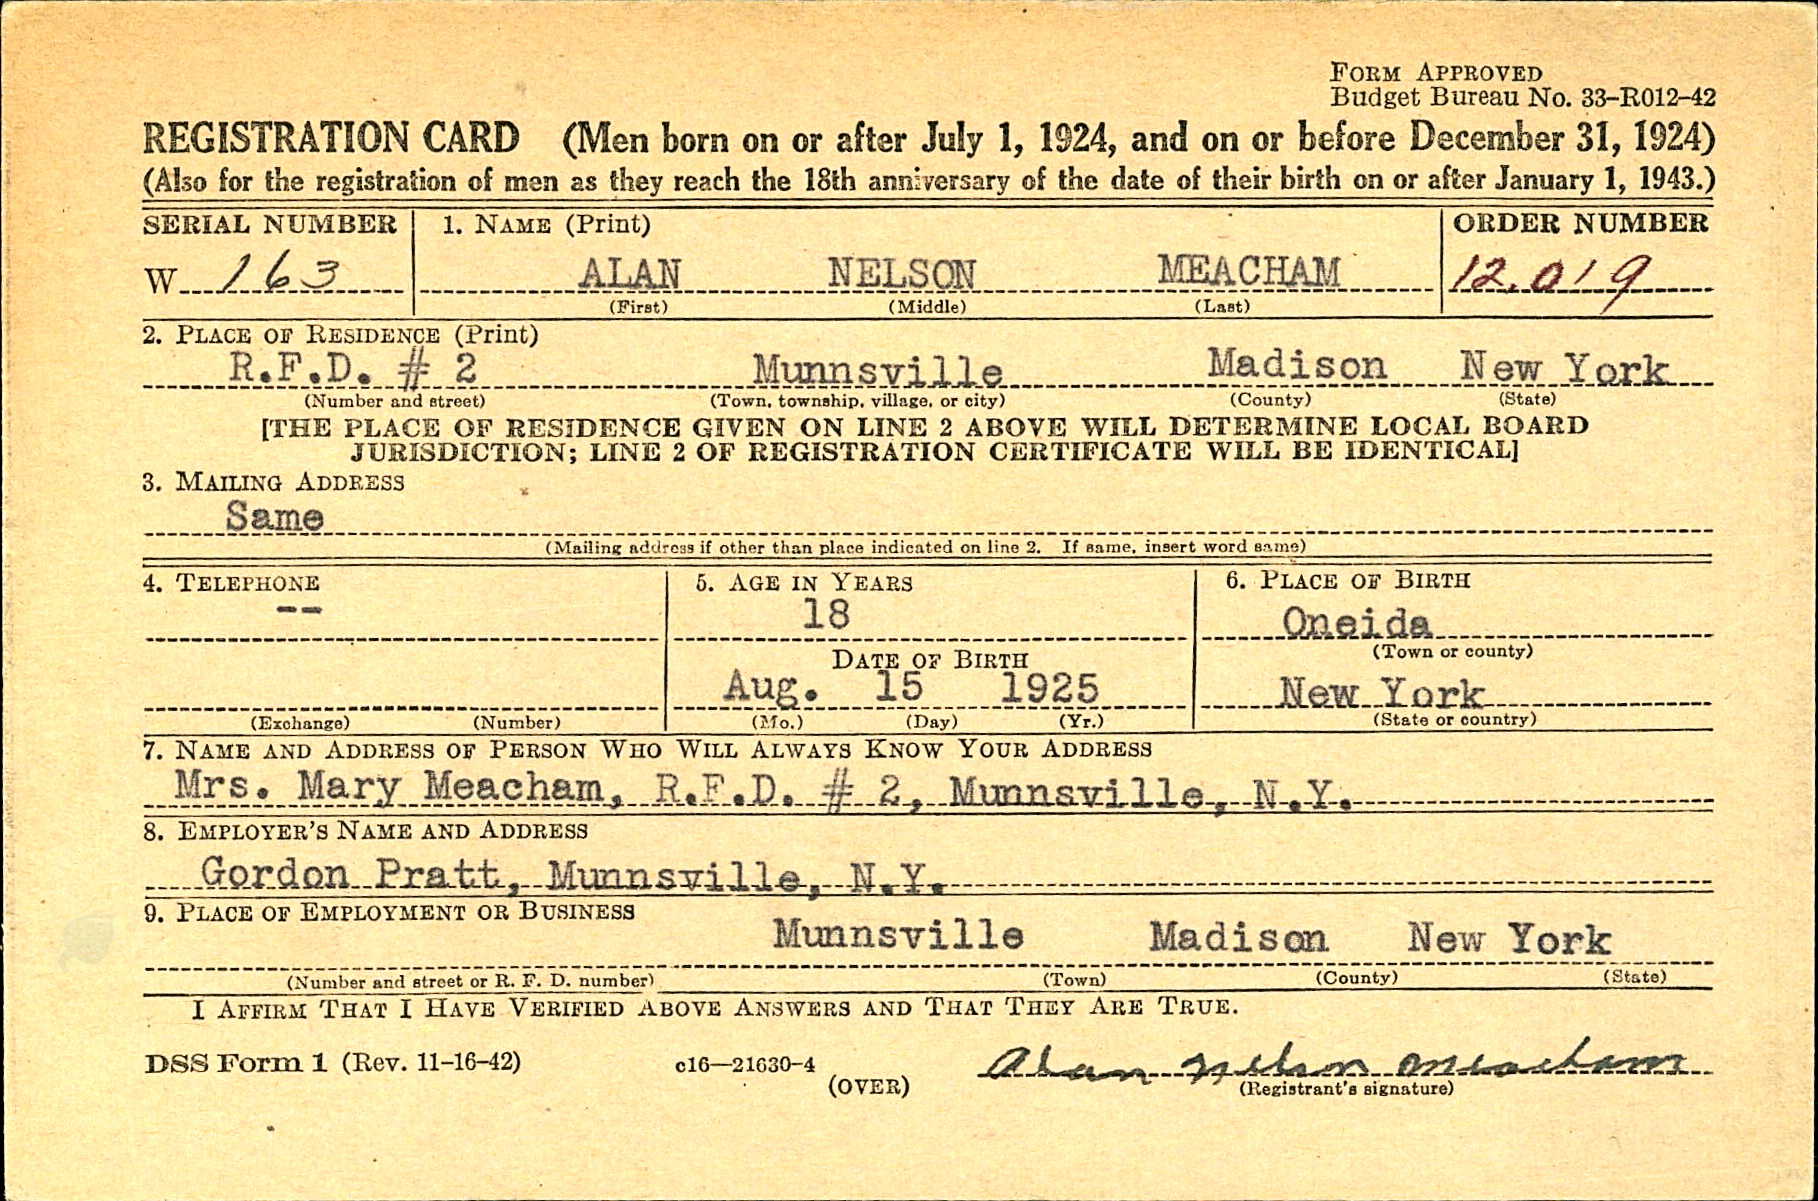 FORM APPROVED
Budget Bureau No. 33-R012-42
REGISTRATION CARD (Men born on or after July 1, 1924, and on or before December 31, 1924)
(Also for the registration of men as they reach the 18th anniversary of the date of their birth on or after January 1, 1943.)
SERIAL NUMBER 1. NAME (Print) ORDER NUMBER
W 163 ALAN NELSON MEACHAM 12,019
(First) (Middle) (Last)
2. PLACE OF RESIDENCE (Print)
R.F.D. # 2 Munnsville Madison New York
(Number and street) (Town, township, village, or city) (County) (State)
[THE PLACE OF RESIDENCE GIVEN ON LINE 2 ABOVE WILL DETERMINE LOCAL BOARD
JURISDICTION; LINE 2 OF REGISTRATION CERTIFICATE WILL BE IDENTICAL]
3. MAILING ADDRESS
Same
(Mailing address if other than place indicated on line 2. If same, insert word same)
4. TELEPHONE 5. AGE IN YEARS 6. PLACE OF BIRTH
-- 18 Oneida
(Town or county)
DATE OF BIRTH
Aug. 15 1925 New York
(Exchange) (Number) (Mo.) (Day) (Yr.) (State or country)
7. NAME AND ADDRESS OF PERSON WHO WILL ALWAYS KNOW YOUR ADDRESS
Mrs. Mary Meacham, R.F.D. # 2, Munnsville, N.Y.
8. EMPLOYER'S NAME AND ADDRESS
Gordon Pratt, Munnsville, N.Y.
9. PLACE OF EMPLOYMENT OR BUSINESS
Munnsville Madison New York
(Number and street or R. F. D. number) (Town) (County) (State)
I AFFIRM THAT I HAVE VERIFIED ABOVE ANSWERS AND THAT THEY ARE TRUE.
DSS Form 1 (Rev. 11-16-42) c16—21630-4 Alan Nelson Meacham
(OVER) (Registrant's signature)